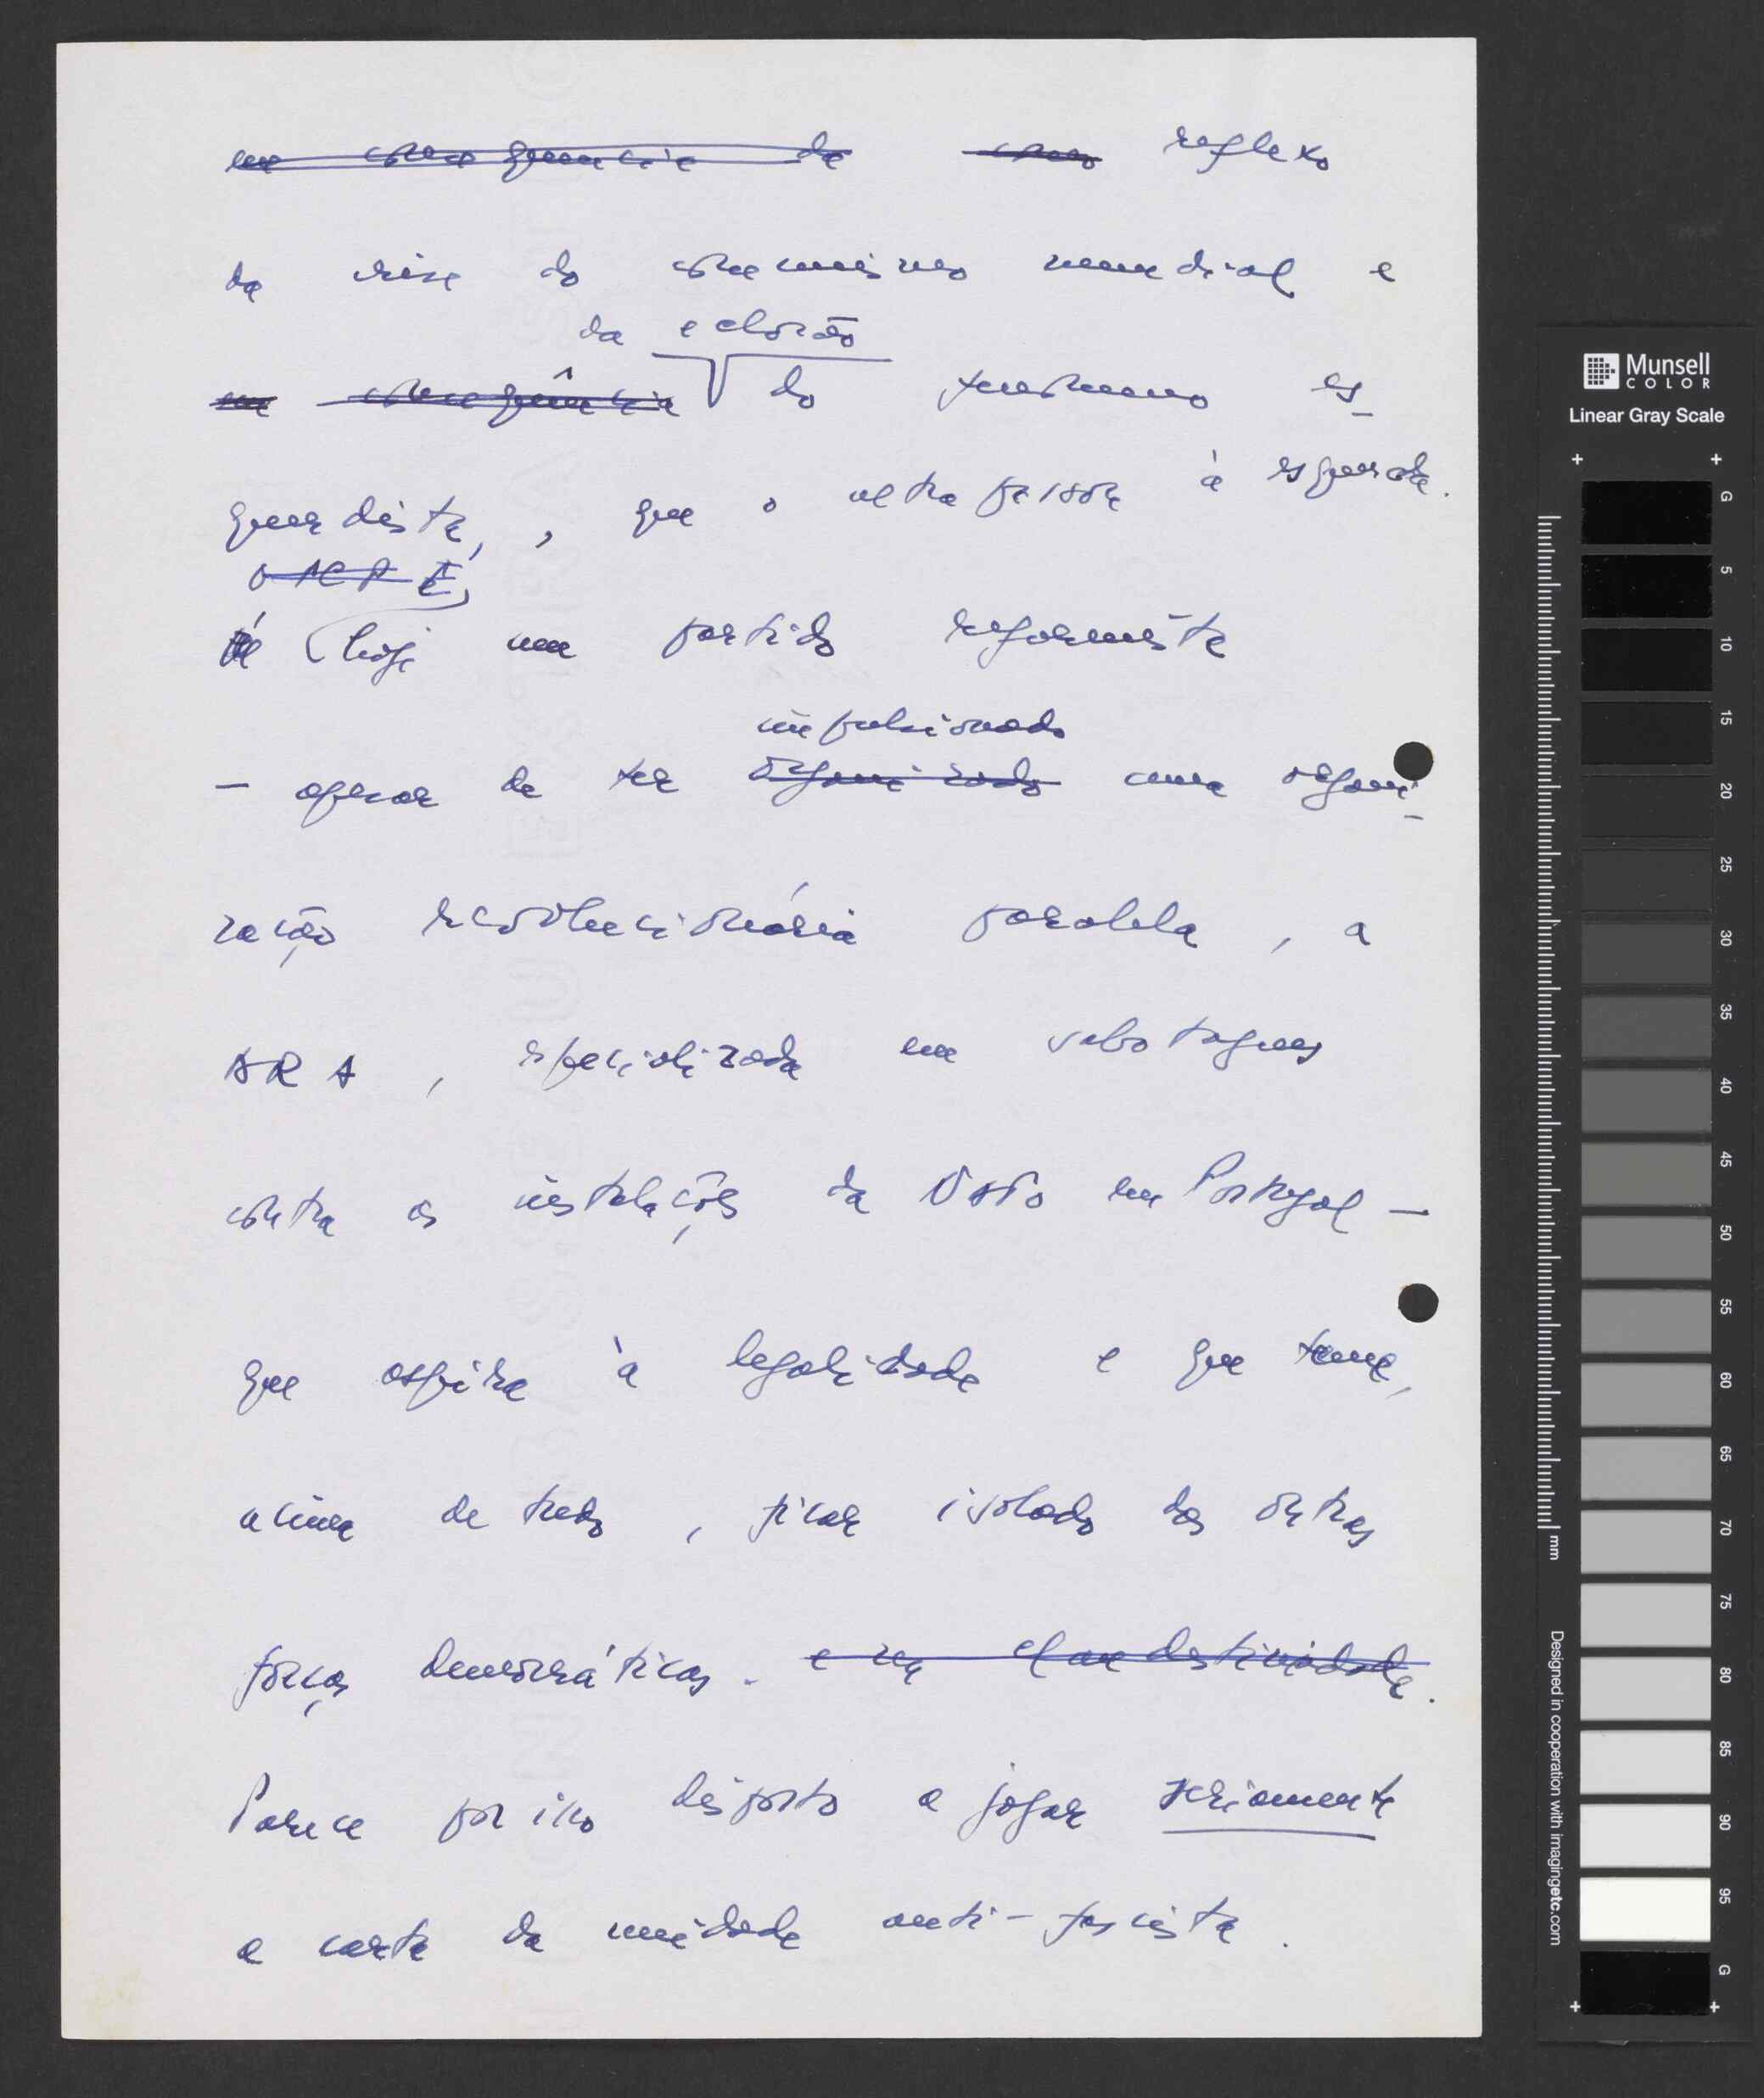 em consequência da como reflexo
da crise do comunismo mundial e
da eclosão
em consequência do fenómeno es-
querdista, , que o ultrapassa à esquerda.
O PCP É,
É hoje um partido reformista
impulsionado
- apesar de ter organizado uma organi-
zação revolucionária paralela, a
ARA, especializada em sabotagens
contra as instalações da NATO em Portugal -
que aspira à legalidade e que teme,
acima de tudo, ficar isolado das outras
forças democráticas. e na clandestinidade.
Parece por isso disposto a jogar seriamente
a carta da unidade anti-fascista.
Munsell
COLOR
Linear Gray Scale
G
5
10
15
20
25
30
35
40
45
50
55
60
65
70
75
80
85
90
95
G
mm
Designed in cooperation with imagingetc.com